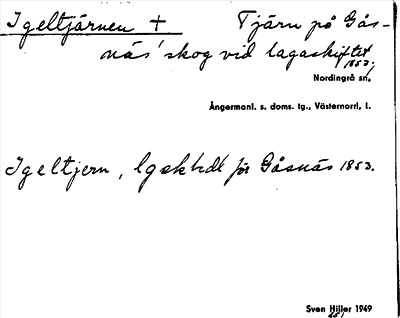 Igeltjärnen + Tjärn på Gås-
näs' skog vid lagaskiftet
1853.
Nordingrå sn,
Ångermanl. s. doms. tg., Västernorrl. l.
Igeltjern, lgskhdl för Gåsnäs 1853.
Sven Hiller 1949